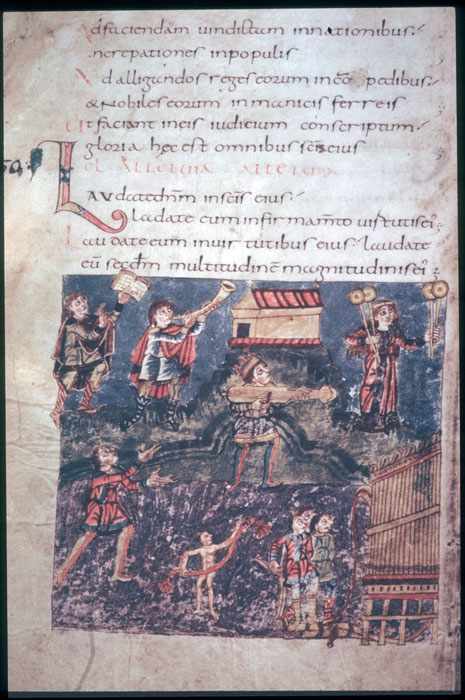 Adfaciendam uindictam innationibus
ncrepationes inpopulis
Adalligandos reges eorum in cō pedibus
& Nobiles eorum inmanicis ferreis
Ut faciant ineis iudicium conscriptum
gloria hec est omnibus sc̄is eius
ALLELUIA ALLELUIA
LAUdatednm̄ insc̄is eius
laudate eum infirmamto uirtutis ei
Laudateeum inuirtutibus eius laudate
eū secdm̄ multitudinē magnitudinis ei